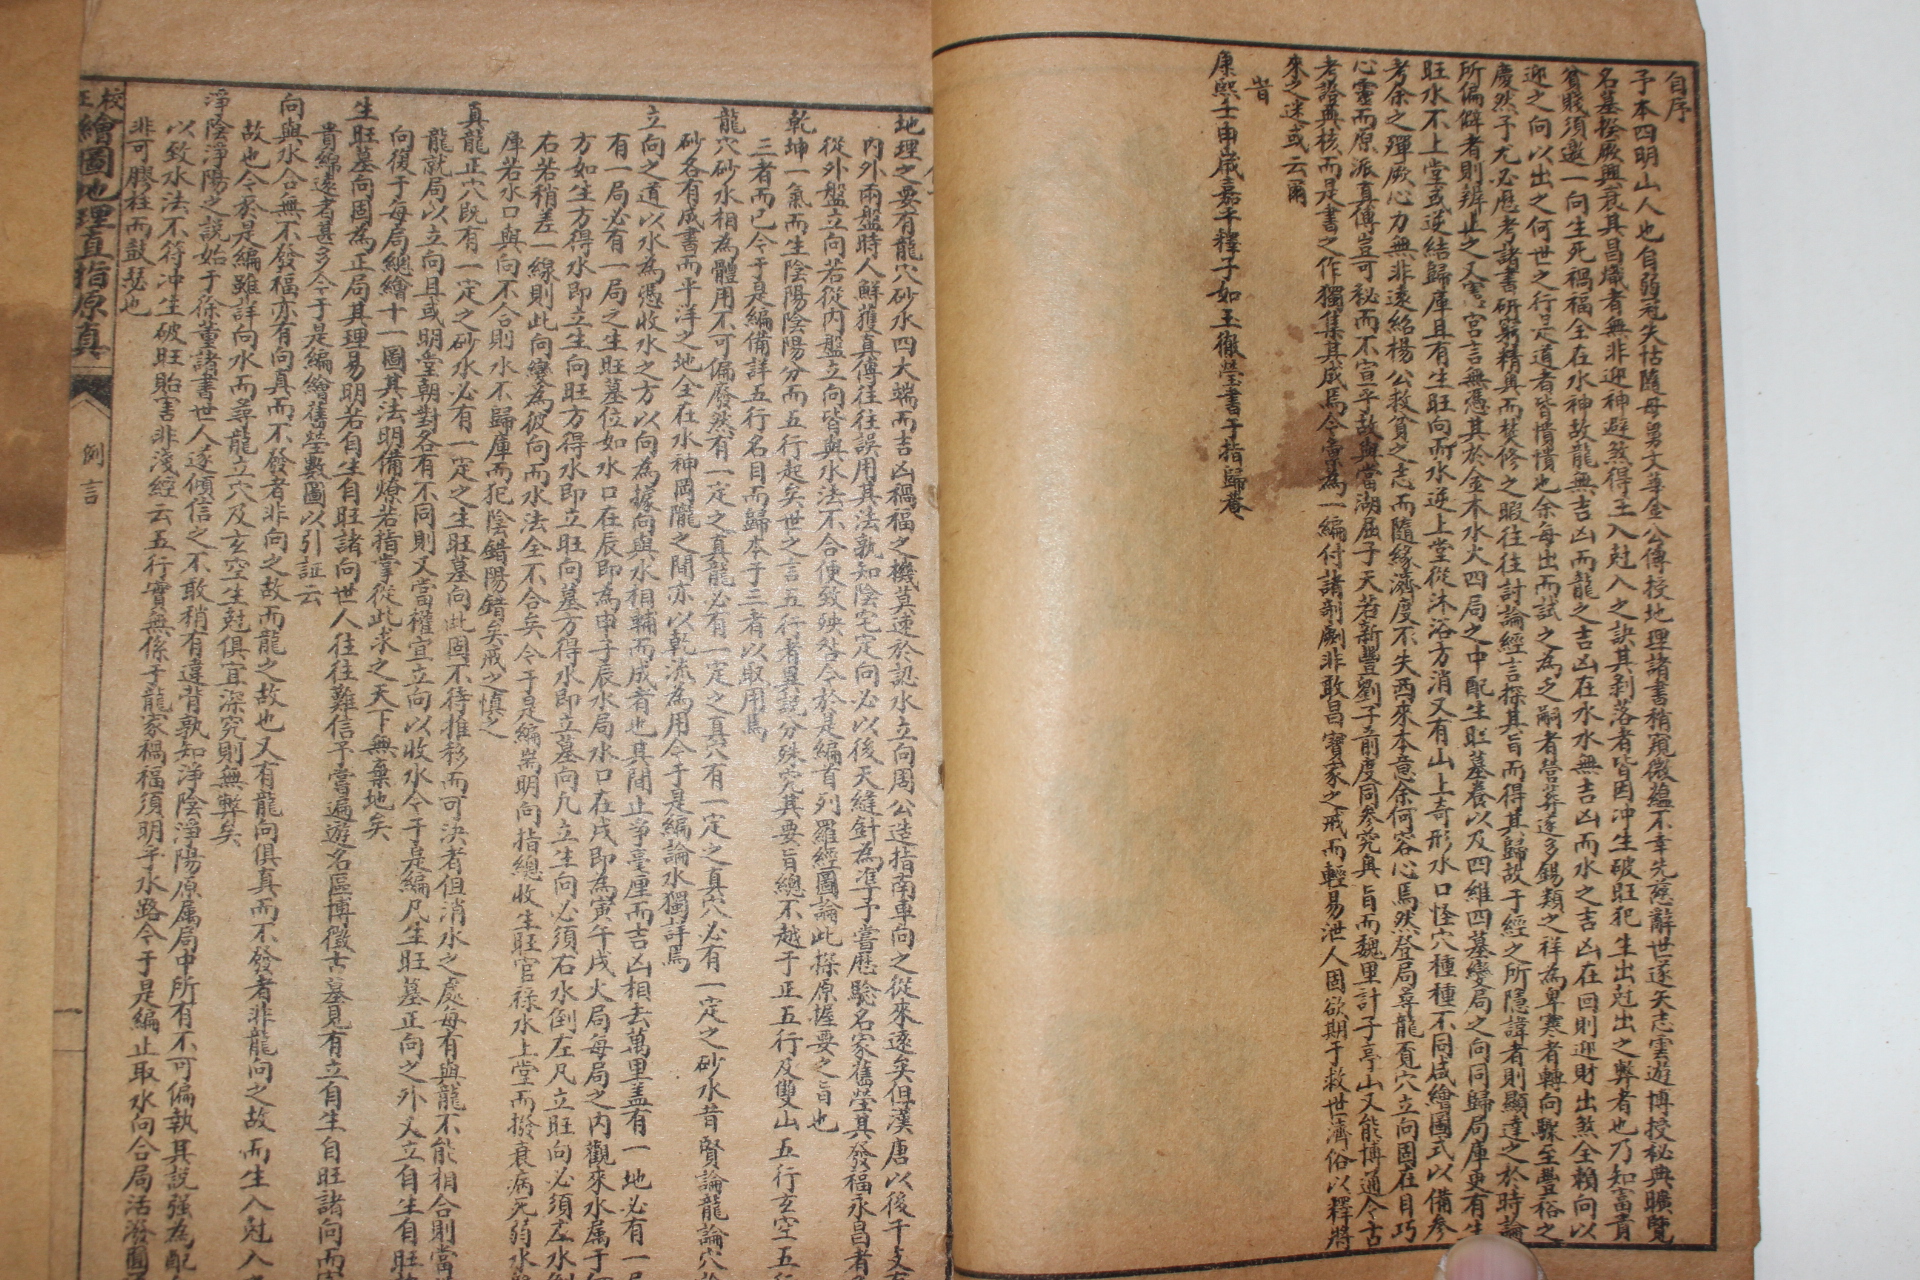 自序
予本四明山人也自弱冠失怙隨母舅文尊金公傳授地理諸書稍窺微蘊不幸先慈辭世遂矢志雲遊博授秘典曠覽
名墓揆厥興衰其昌熾者無非迎神避煞得生入尅入之訣其剥落者皆因冲生破旺犯生出尅出之弊者也乃知富貴
貧賤須邀一向生死禍福全在水神故龍無吉凶而龍之吉凶在水水無吉凶而水之吉凶在回則迎財出煞全賴向以
迎之向以出之何世之行是道者皆憒憒也余每出而試之為乏嗣者營葬遂多錫類之祥為卑寒者轉向驟至豐裕之
慶然予尤必歷考諸書研窮精奧而焚修之暇往往討論經言探其旨而得其歸故于經之所隱諱者則顯達之於時論
所偏僻者則辨止之又言言無憑其於金木水火四局之中配生旺墓養以及四維四墓變局之向同歸局庫更有生
旺水不上堂或逆結歸庫且有生旺向而水逆上堂從沐浴方消又有山上奇形水口怪穴種種不同咸繪圖式以備參
考余之殫厥心力無非遠紹楊公救貧之志而隨緣濟度不失西來本意余何容心焉然登局尋龍覓穴立向固在目巧
心靈而原派真傳豈可秘而不宣乎故與當湖屈子天若新豐劉子前度同參究奧旨而魏里計子亭山又能博通今古
考證典核而是書之作獨集其成焉今彙為一編付諸剞劂非敢昌寶家之戒而輕易泄人固欲期于救世濟俗以釋將
來之迷或云爾
旹
康熙壬申歲嘉平釋子如玉徹瑩書于指歸菴
地理之要有龍穴砂水四大端而吉凶禍福之機莫速於認水立向周公造指南車向之從來遠矣但漢唐以後干支有
內外兩盤時人鮮獲真傳往往誤用其法孰知陰宅定向必以後天縫針為準予嘗歷驗名家舊塋其發福永昌者
從外盤立向若從內盤立向皆與水法不合便致殃咎今於是編首列羅經圖論此探原握要之旨也
乾坤一氣而生陰陽陰陽分而五行起矣世之言五行者異說分殊究其要旨總不越于正五行及雙山五行玄空五行
三者而已今于是編備詳五行名目而歸本于三者以取用焉
龍穴砂水相為體用不可偏廢然有一定之真龍必有一定之真穴有一定之真穴必有一定之砂水昔賢論龍論穴
砂各有成書而平洋之地全在水神岡隴之間亦以乾流為用今于是編論水獨詳焉
立向之道以水為憑收水之方以向為據向與水相輔而成者也其間止爭毫厘而吉凶相去萬里盖有一地必有一局
有一局必有一局之生旺墓位如水口在辰即為申子辰水局水口在戌即為寅午戌火局每局之內觀來水属于何
方如生方得水即立生向旺方得水即立旺向墓方得水即立墓向凡立生向必須右水倒左凡立旺向必須左水倒
右若稍差一線則此向變為彼向而水法全不合矣今于是編耑明向指總收生旺官祿水上堂而撥衰病死弱水
庫若水口與向不合則水不歸庫而犯陰錯陽錯矣戒之慎之
真龍正穴既有一定之砂水必有一定之生旺墓向此固不待推移而可決者但消水之處每有與龍不能相合則當
龍就局以立向且或明堂朝對各有不同則又當權宜立向以收水今于是編凡生旺墓正向之外又立自生自旺
向復于每局總繪十一圖其法明備燎若指掌從此求之天下無棄地矣
生旺墓向固為正局其理易明若自生自旺諸向世人往往難信予嘗遍遊名區博徵古墓見有立自生自旺諸向而
貴綿遠者甚多今于是編繪舊塋數圖以引証云
向與水合無不發福亦有向真而不發者非向之故而龍之故也又有龍向俱真而不發者非龍向之故而生入尅入
故也今於是編雖詳向水而尋龍立穴及玄空生尅俱宜深究則無弊矣
淨陰淨陽之說始于徐董諸書世人遂傾信之不敢稍有違背孰知淨陰淨陽原属局中所有不可偏執其說强為配
以致水法不符冲生破旺貽害非淺經云五行實無係于龍家禍福須明乎水路今于是編止取水向合局活潑圓
非可膠柱而鼓瑟也
校
繪圖地理直指原真
例言
一